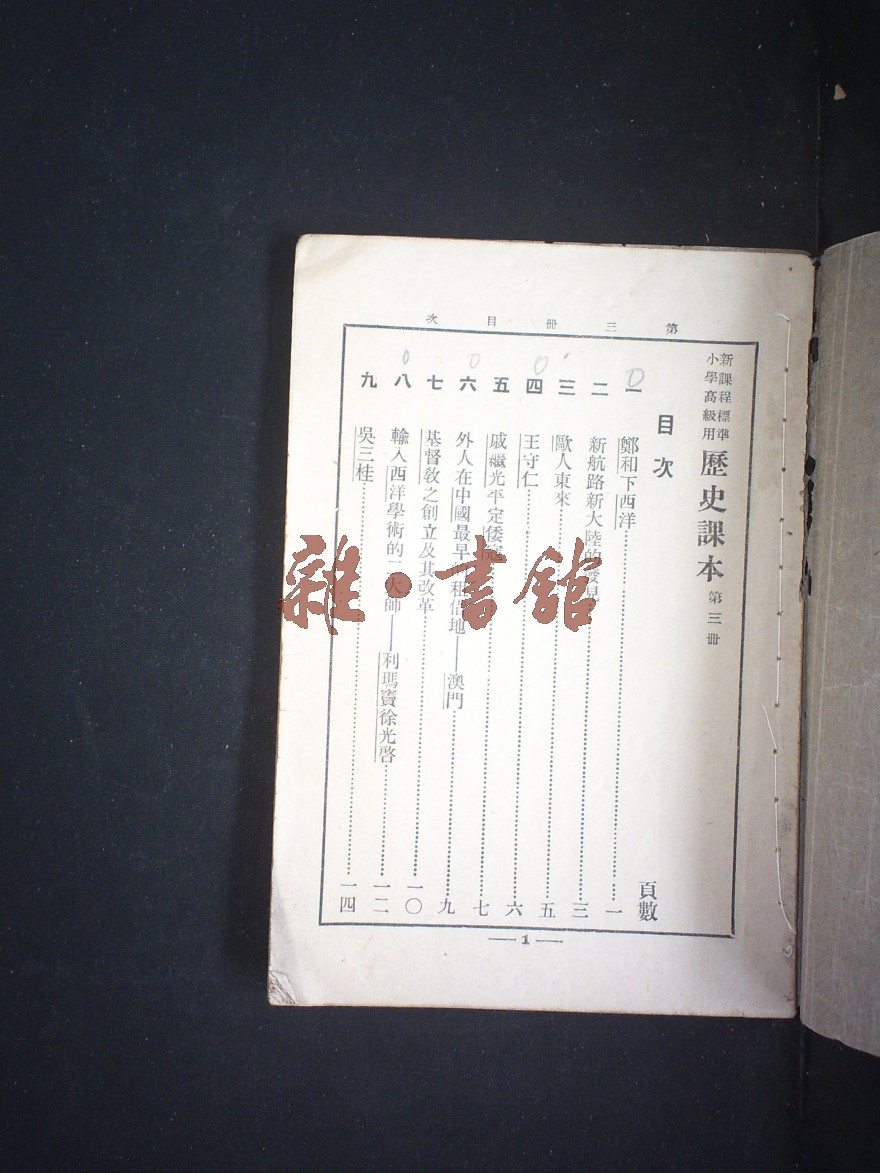 第三冊目次
新課程標準
小學高級用
歷史課本 第三冊
目次
頁數
一 鄭和下西洋 一
二 新航路新大陸的發見 三
三 歐人東來 五
四 王守仁 六
五 戚繼光平定倭寇 七
六 外人在中國最早的租借地——澳門 九
七 基督教之創立及其改革 一〇
八 輸入西洋學術的二大師——利瑪竇徐光啓 一二
九 吳三桂 一四
— 1 —
雜·書館